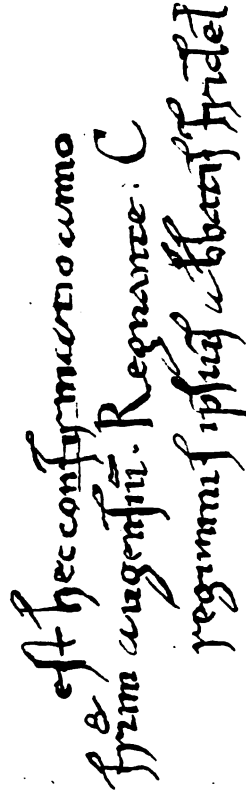 est hec confirmatio anno
augensiū. Regnante. C
regiminis ipsius abbatis fridel